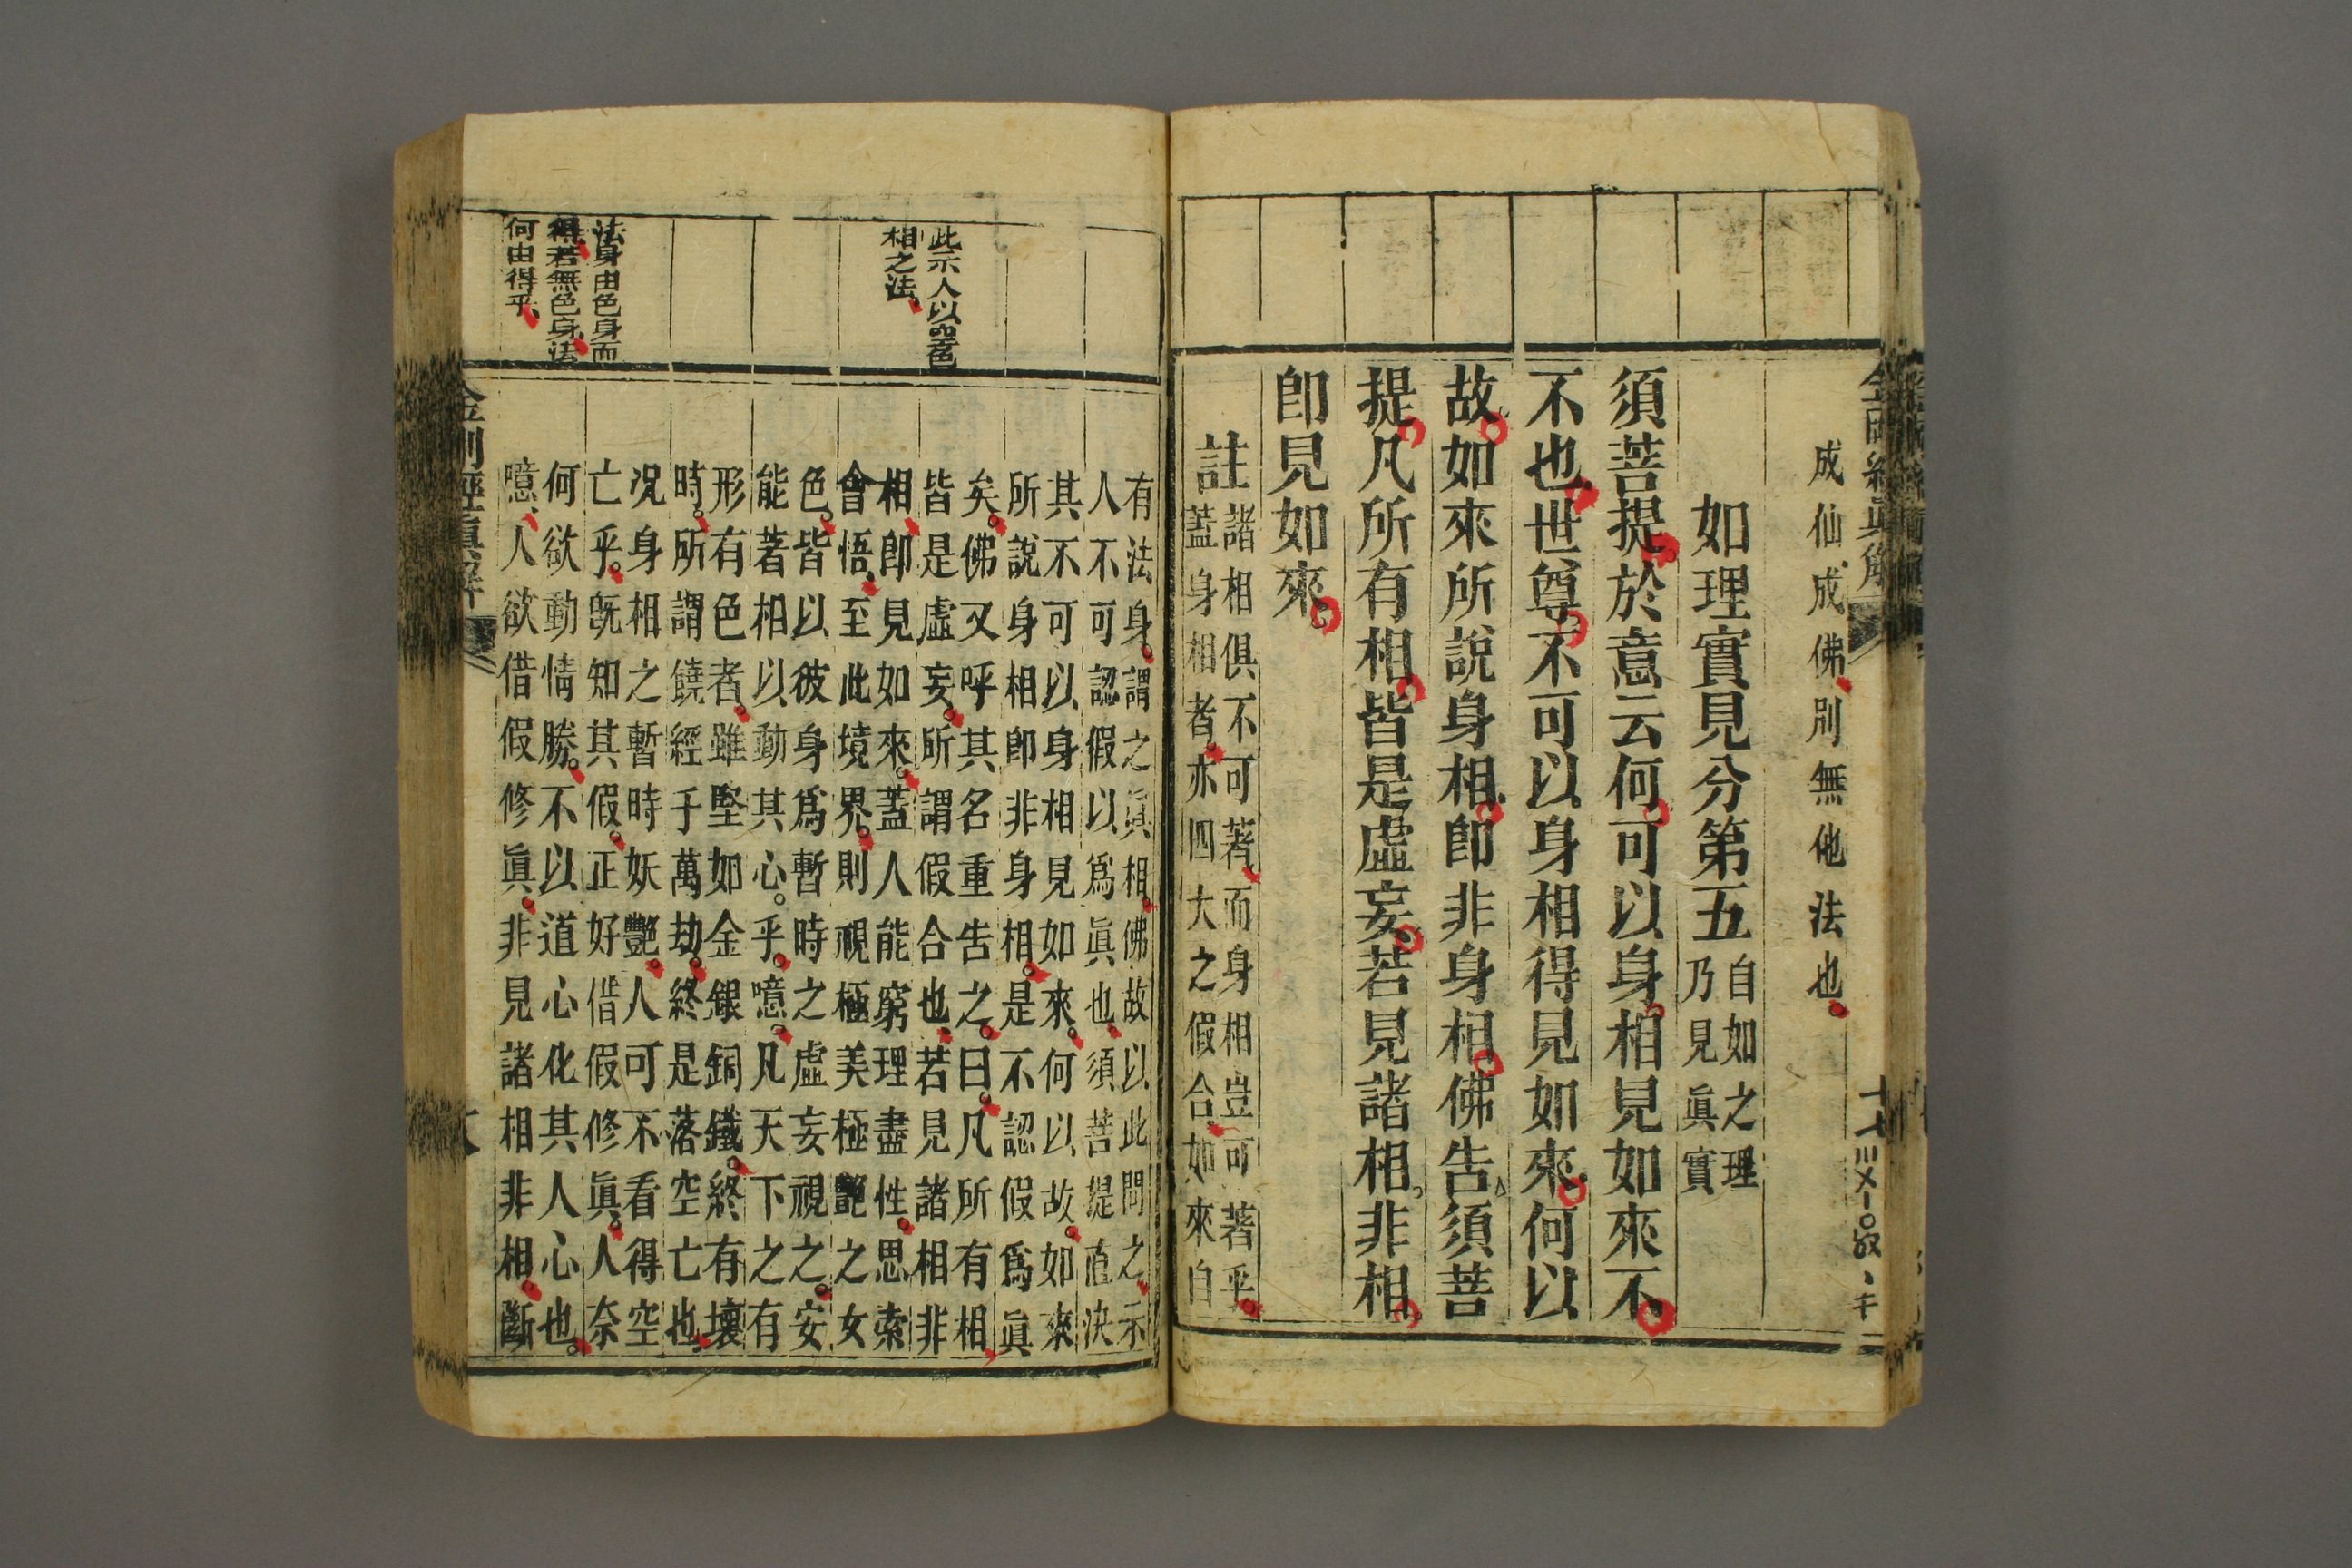 成仙成佛別無他法也
如理實見分第五
自如之理
乃見眞實
須菩提於意云何可以身相見如來不
不也世尊不可以身相得見如來何以
故如來所說身相卽非身相佛告須菩
提凡所有相皆是虛妄若見諸相非相
卽見如來
註
諸相俱不可著而身相豈可著乎
蓋身相者亦四大之假合如來自
此示人以空色
相之法
法身由色身而
得若無色身法
何由得乎
有法身謂之眞相佛故以此問之示
人不可認假以爲眞也須菩提直決
其不可以身相見如來何以故如來
所說身相卽非身相是不認假爲眞
矣佛又呼其名重告之曰凡所有相
皆是虛妄所謂假合也若見諸相非
相卽見如來蓋人能窮理盡性思索
會悟至此境界則視極美極艷之女
色皆以彼身爲暫時之虛妄視之安
能著相以動其心乎噫凡天下之有
形有色者雖堅如金銀銅鐵終有壞
時所謂饒經千萬劫終是落空亡也
况身相之暫時妖艷人可不看得空
亡乎旣知其假正好借假修眞人奈
何欲動情勝不以道心化其人心也
噫人欲借假修眞非見諸相非相斷
金剛經眞解